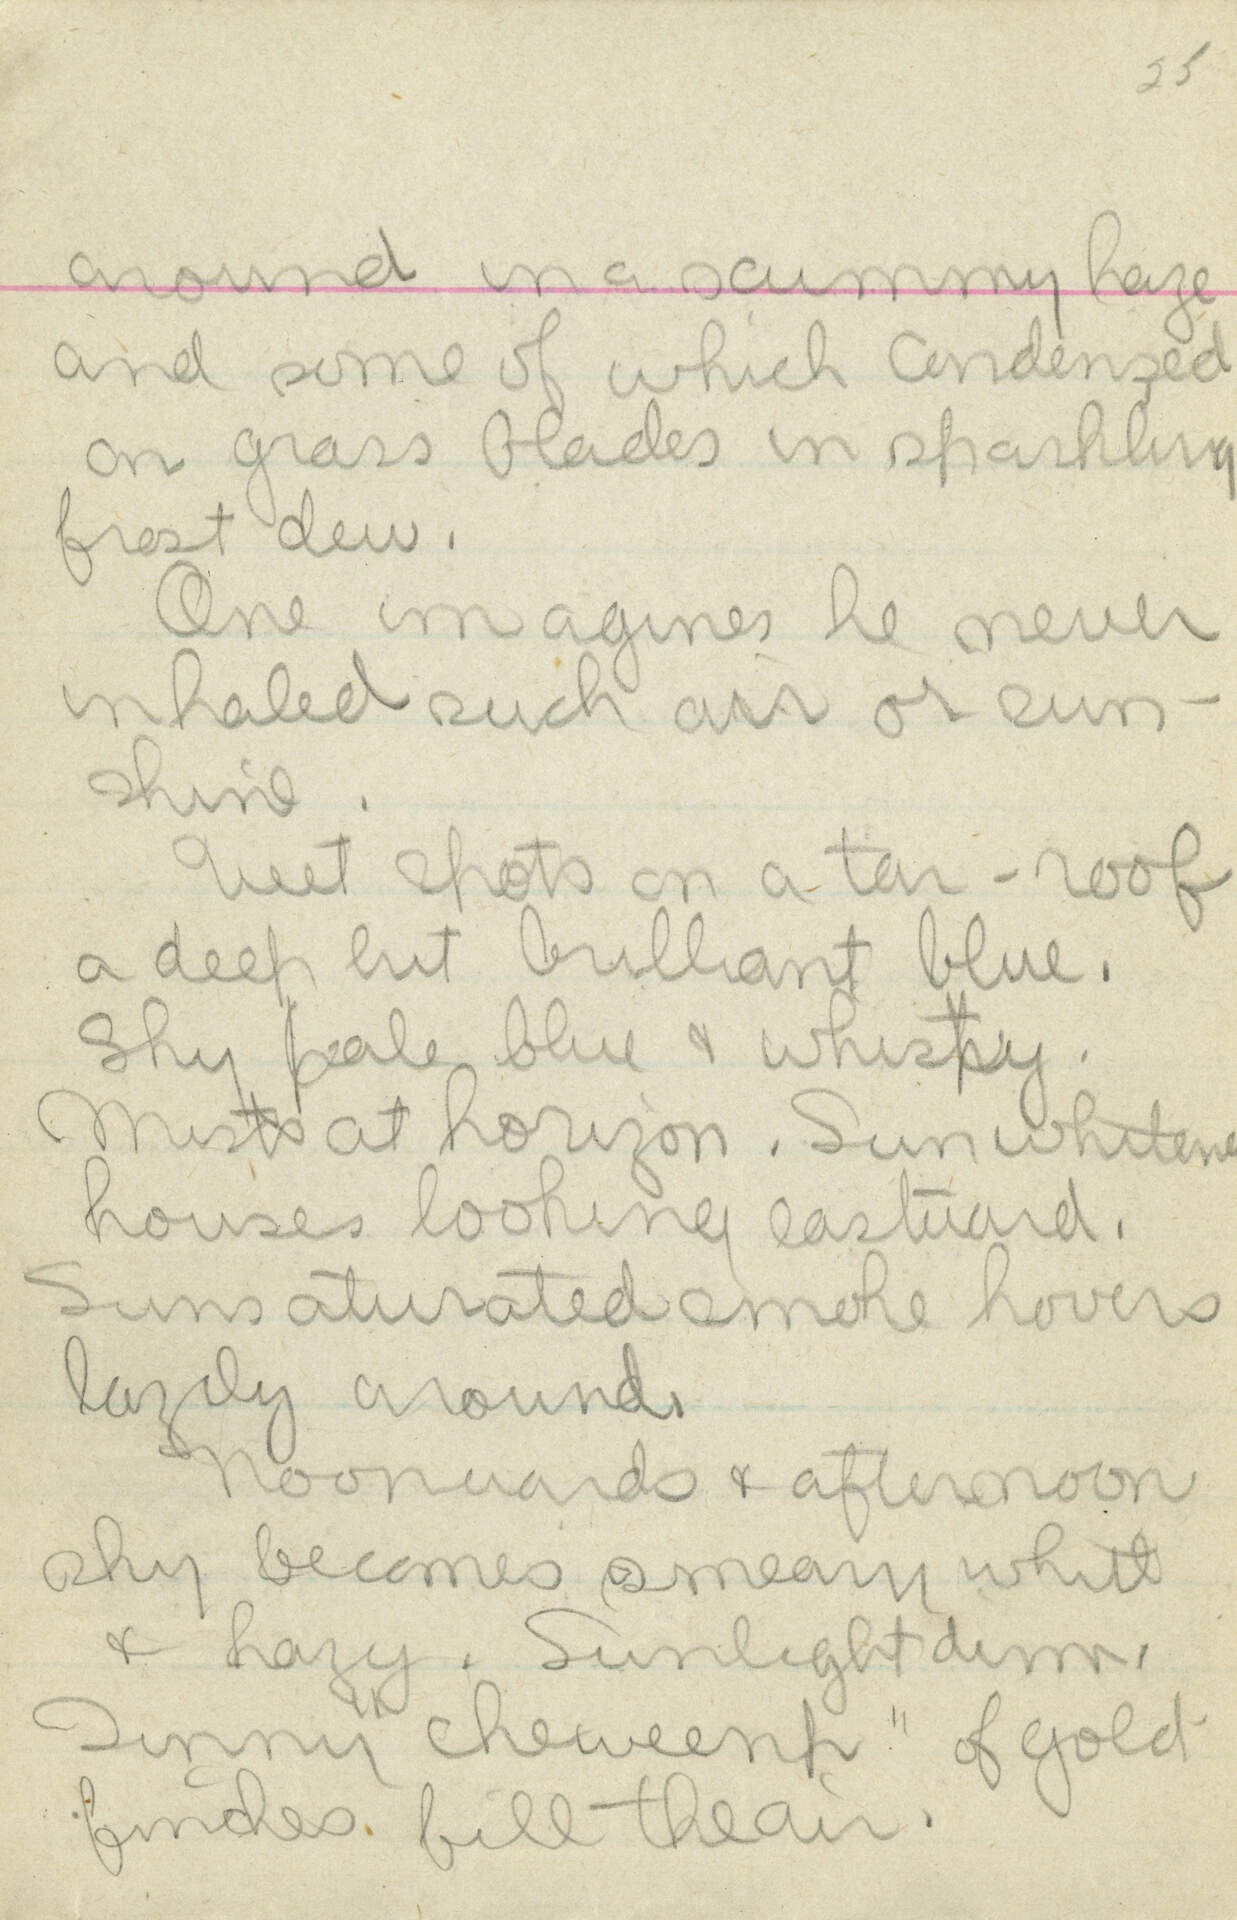 25
around in a scummy haze
and some of which condensed
on grass blades in sparkling
frost dew.
One imagines he never
inhaled such air or sun-
shine.
Wet spots on a tar-roof
a deep but brilliant blue.
Sky pale blue & whispy.
Mists at horizon. Sun whitens
houses looking eastward.
Sunsaturated smoke hovers
lazily around.
Noonwards & afternoon
sky becomes smeary white
& hazy. Sunlight dim.
Tinny "cheweenp" of gold
finches fill the air.